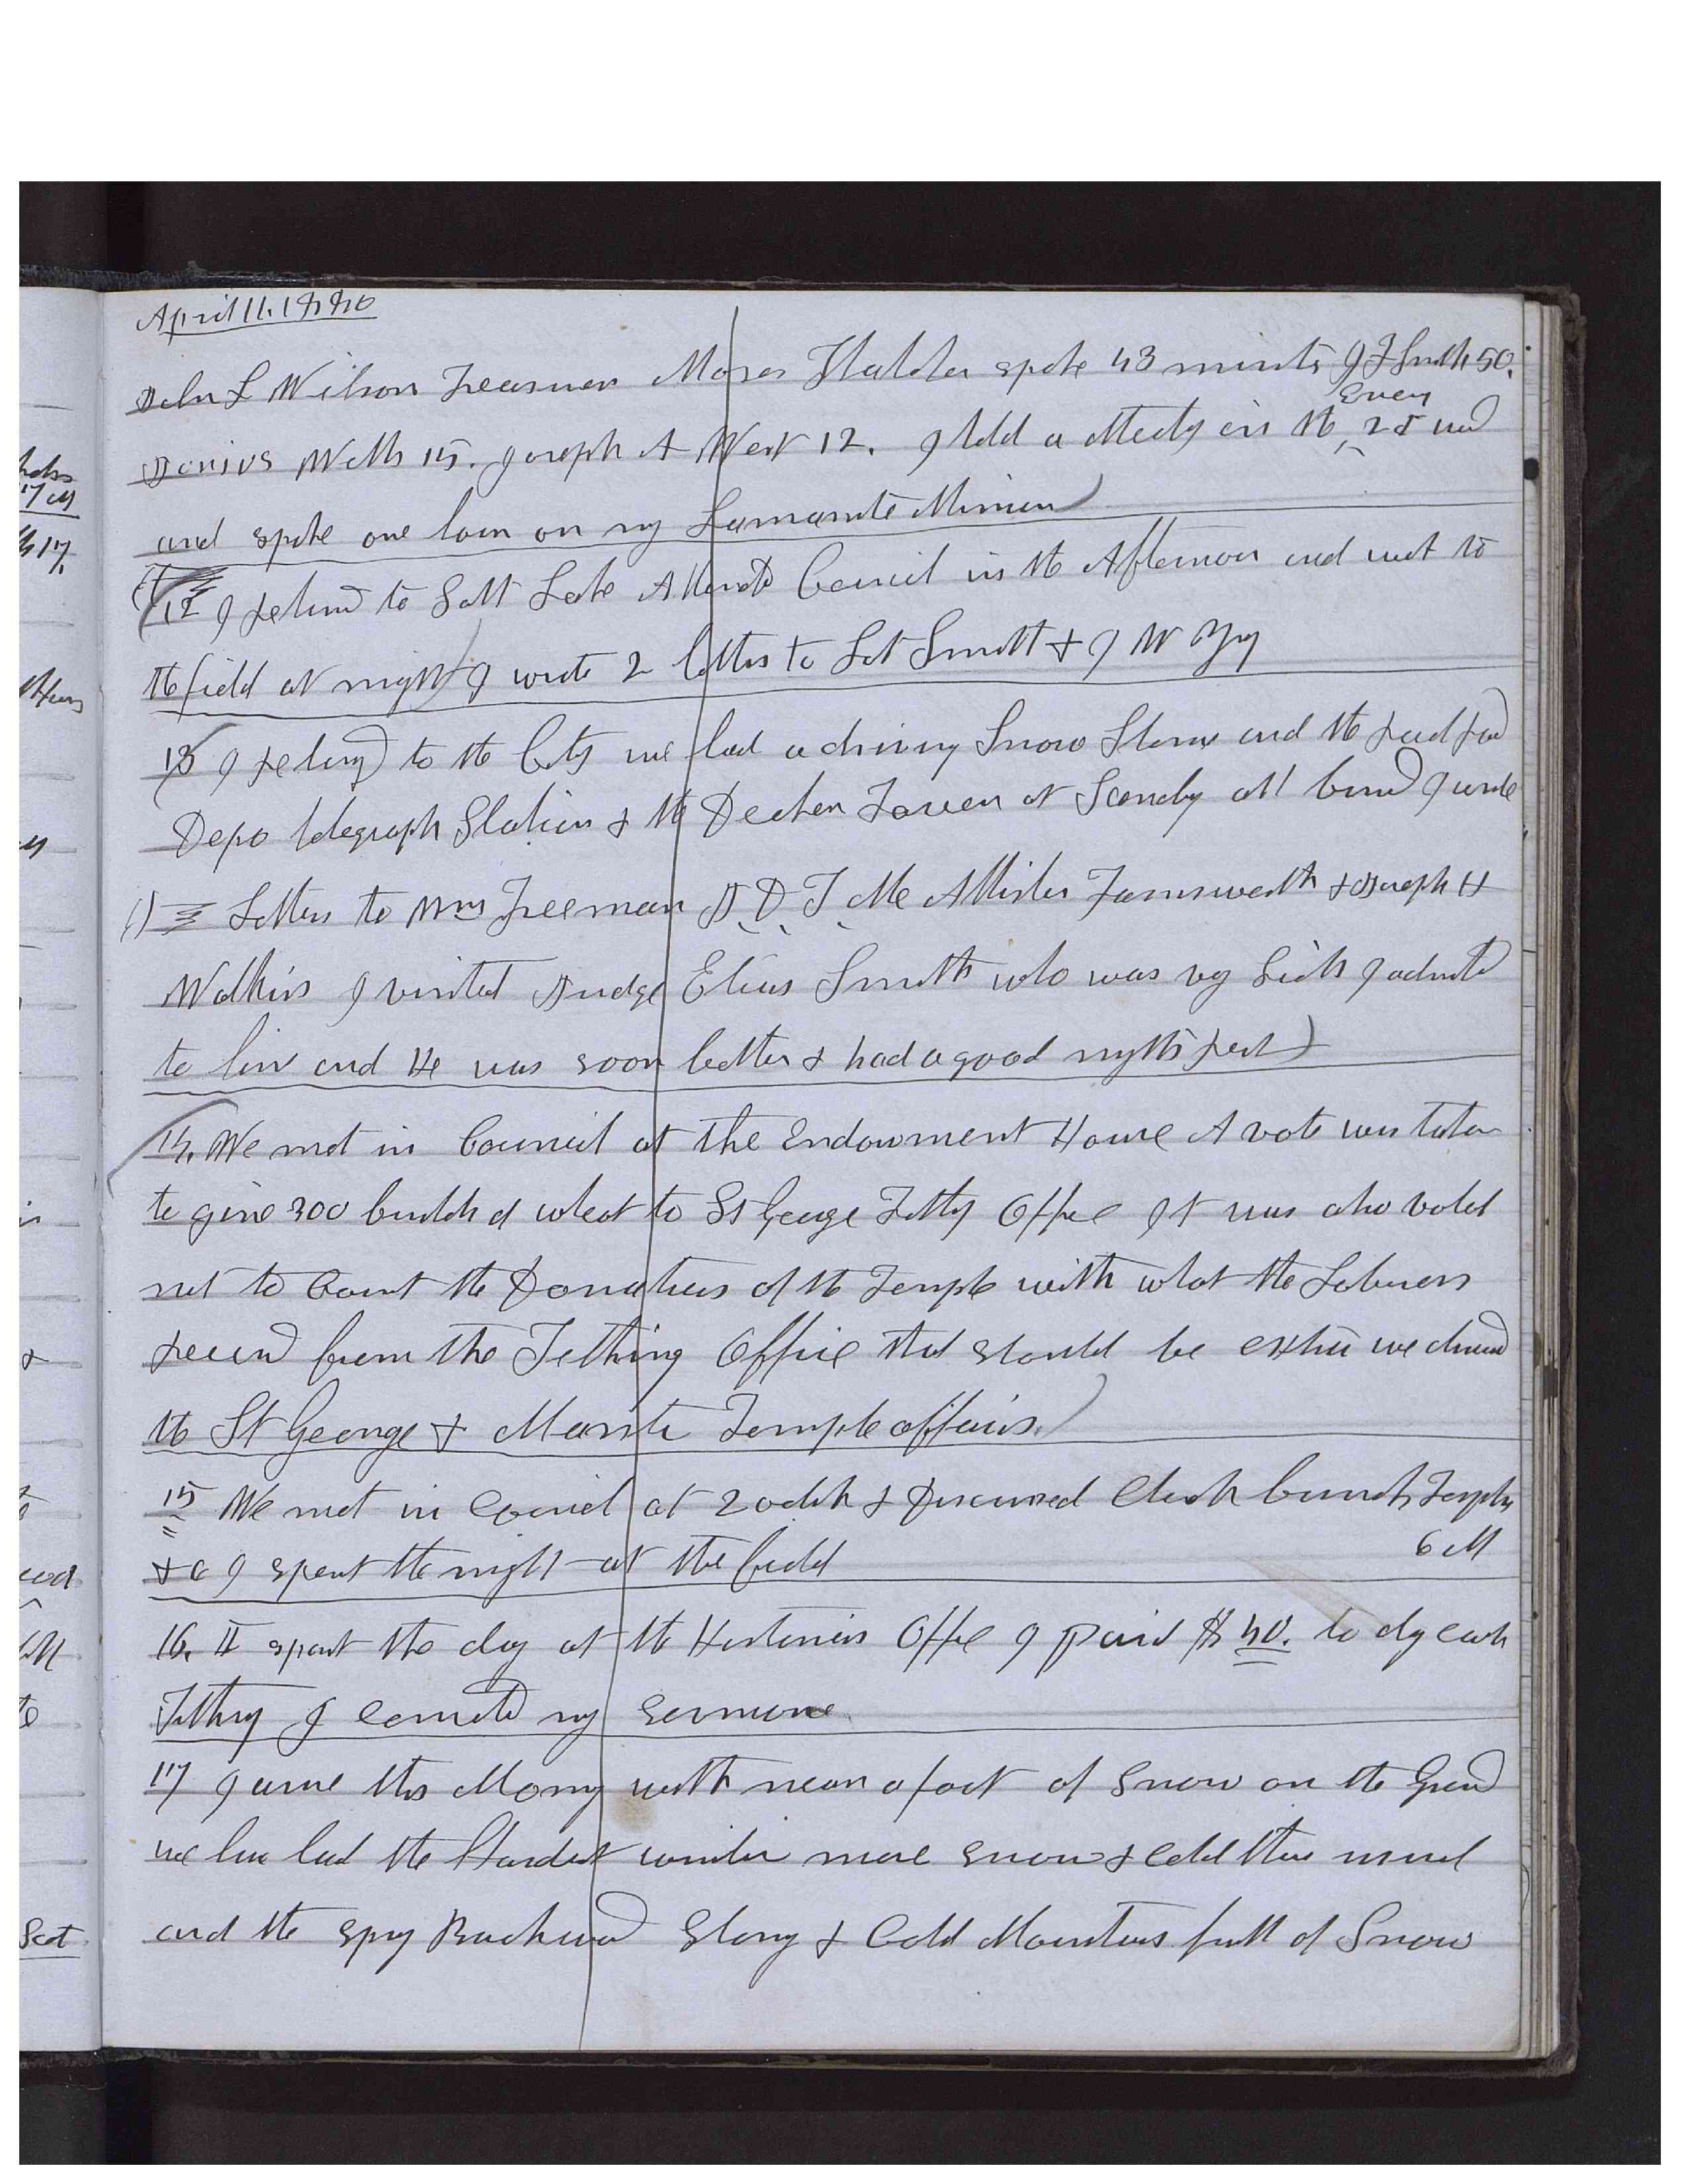 April 11. 1880
John L Wilson Treasurer Moses Thatcher spoke 43 minuts J F Smith 50.
Junius Wells 15. Joseph A West 12. I held a Meeting in the Even 2d ward
and spoke one hour on my Lamanite Mission
12 I returnd to Salt Lake Attended Council in the Afternoon and went to
the field at night I wrote 2 letters to Lot Smith & J W Yg
13 I returnd to the City we had a driving Snow Storm and the rail road
Depo telegraph Station & the at Sandy all burnd I wrote
3 Letters to Wm Freeman J D T McAllister Farnsworth & Joseph H
Watkins I visited Judge Elias Smith who was vry Sick I admstd
to him and He was soon better & had a good nights rest
14. We met in Council at the Endowment House A vote was taken
to give 300 bushels of wheat to St George Tithg Office It was also voted
not to Count the Donations of the Temple with what the Laborers
receivd from the Tithing Office that should be extra we discussd
the St George & Manti Temple affairs.
15 We met in Council at 2 oclok & Discussed Cash Temple
&c I spent the night at the field 6 M
16. I spent the day at the Historians Office I paid $40. to day cash
Tithing I corrected my sermone
17 I arose this Morng with near a foot of Snow on the Ground
we have had the Hardest winter more snow & cold than usual
and the sprg Backward Stormy & Cold Mountains full of Snow